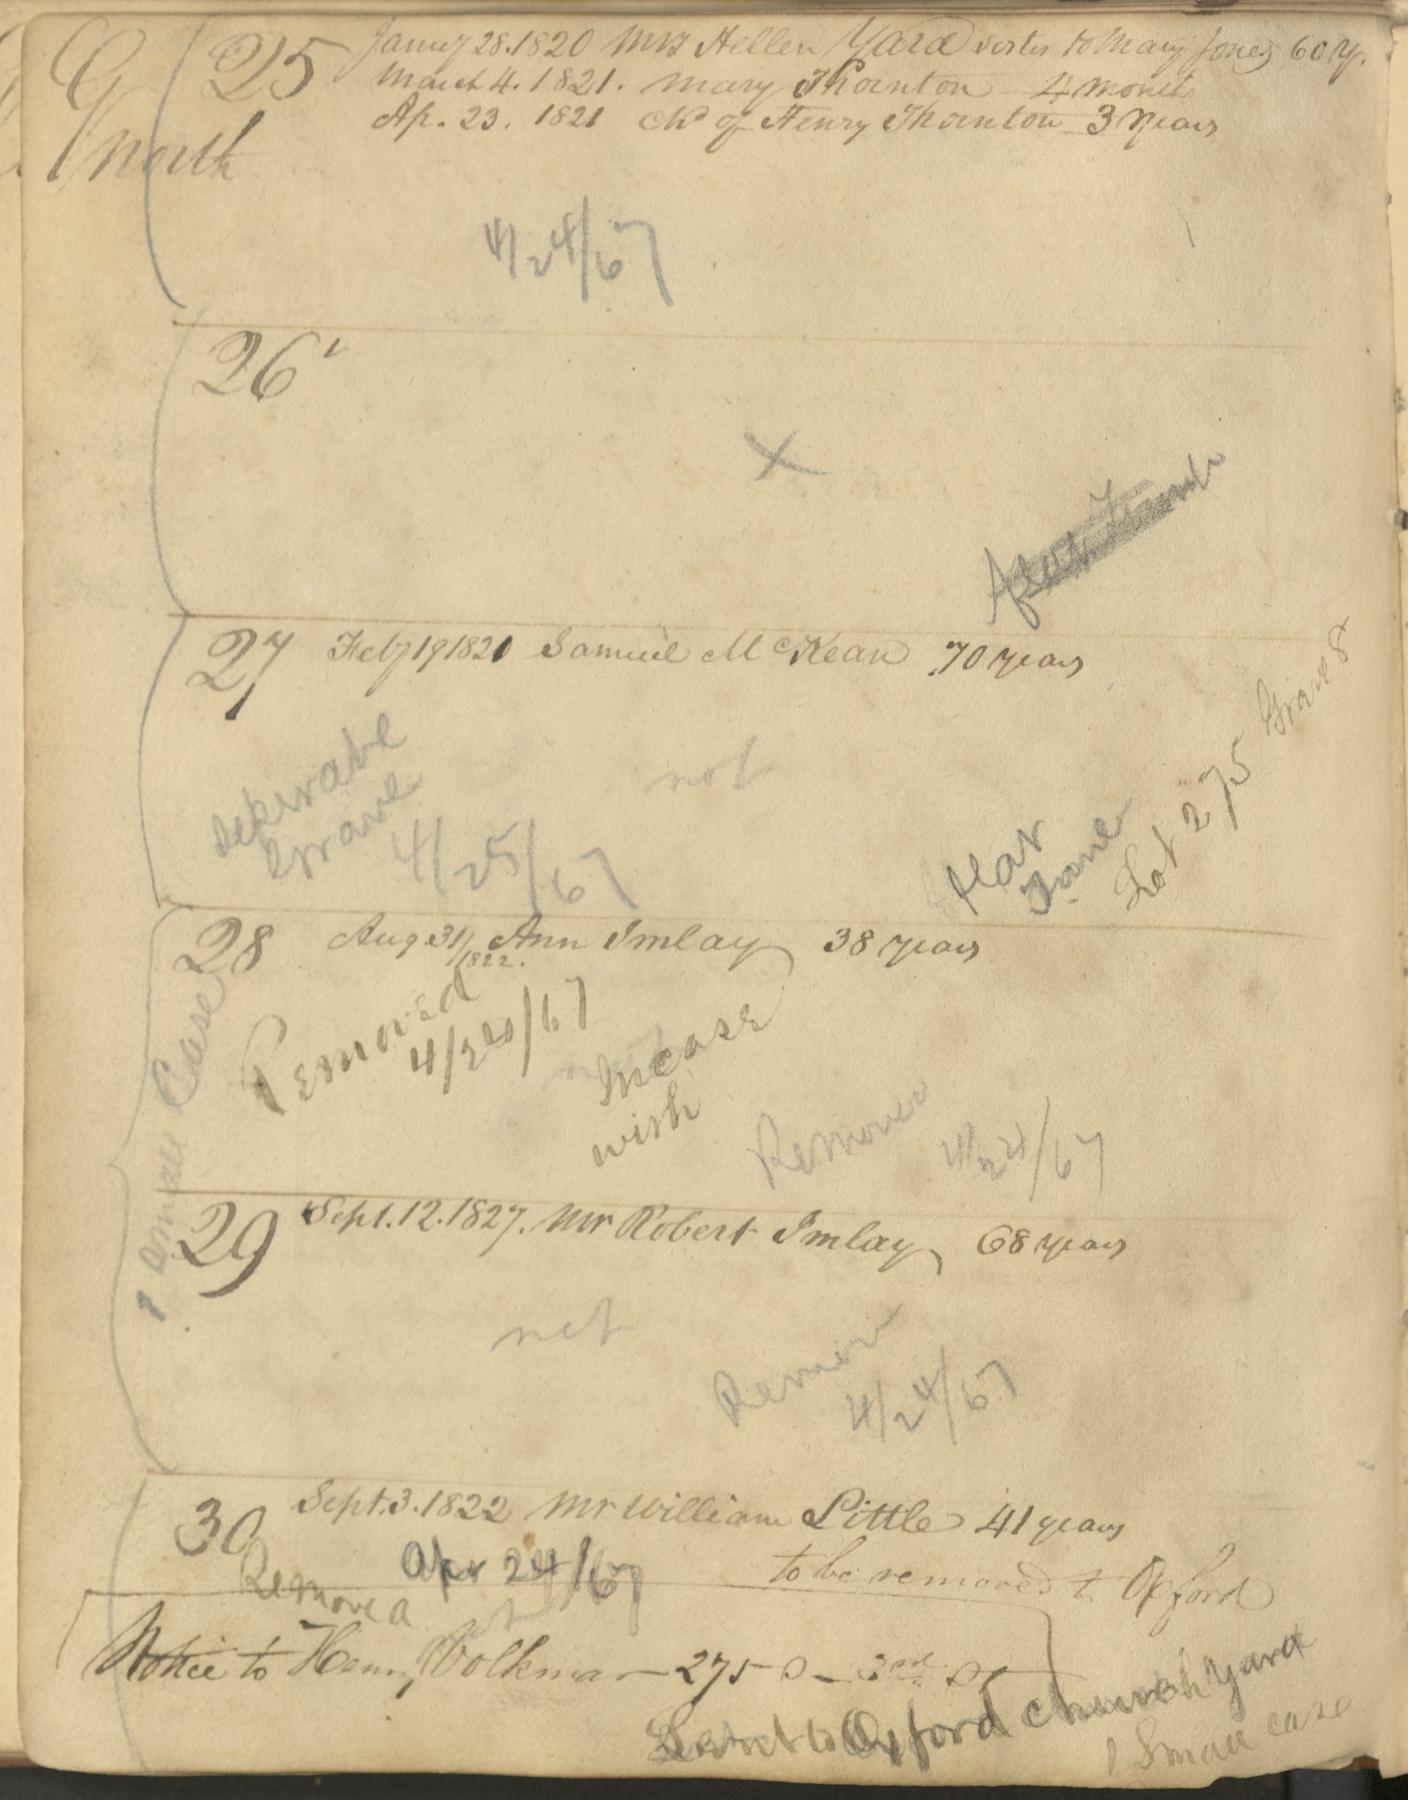 G
north
25 Januy 28. 1820 Mrs Hellen Yard sister to Mary Jones 60 y.
March 4. 1821. Mary Thornton 4 months
Ap. 23. 1821 chd of Henry Thornton 3 Years
4/24/67
26
X
27 Feby 19 1821 Samuel McKean 70 years
seperate
Grave
4/25/67
not
flat
Lot 275 Graves
28 Aug 31/1822. Ann Imlay 38 years
Removed
4/24/67
incase
wish
Removed
4/24/67
1 small Case
29 Sept. 12. 1827. Mr Robert Imlay 68 years
not
Remov
4/24/67
30 Sept. 3. 1822 Mr William Little 41 years
Removed Apr 24/67
to be removed to Oxford
Notice to Henry Volkmar - 275 S - 3rd St
to Oxford church yard
1 Small case